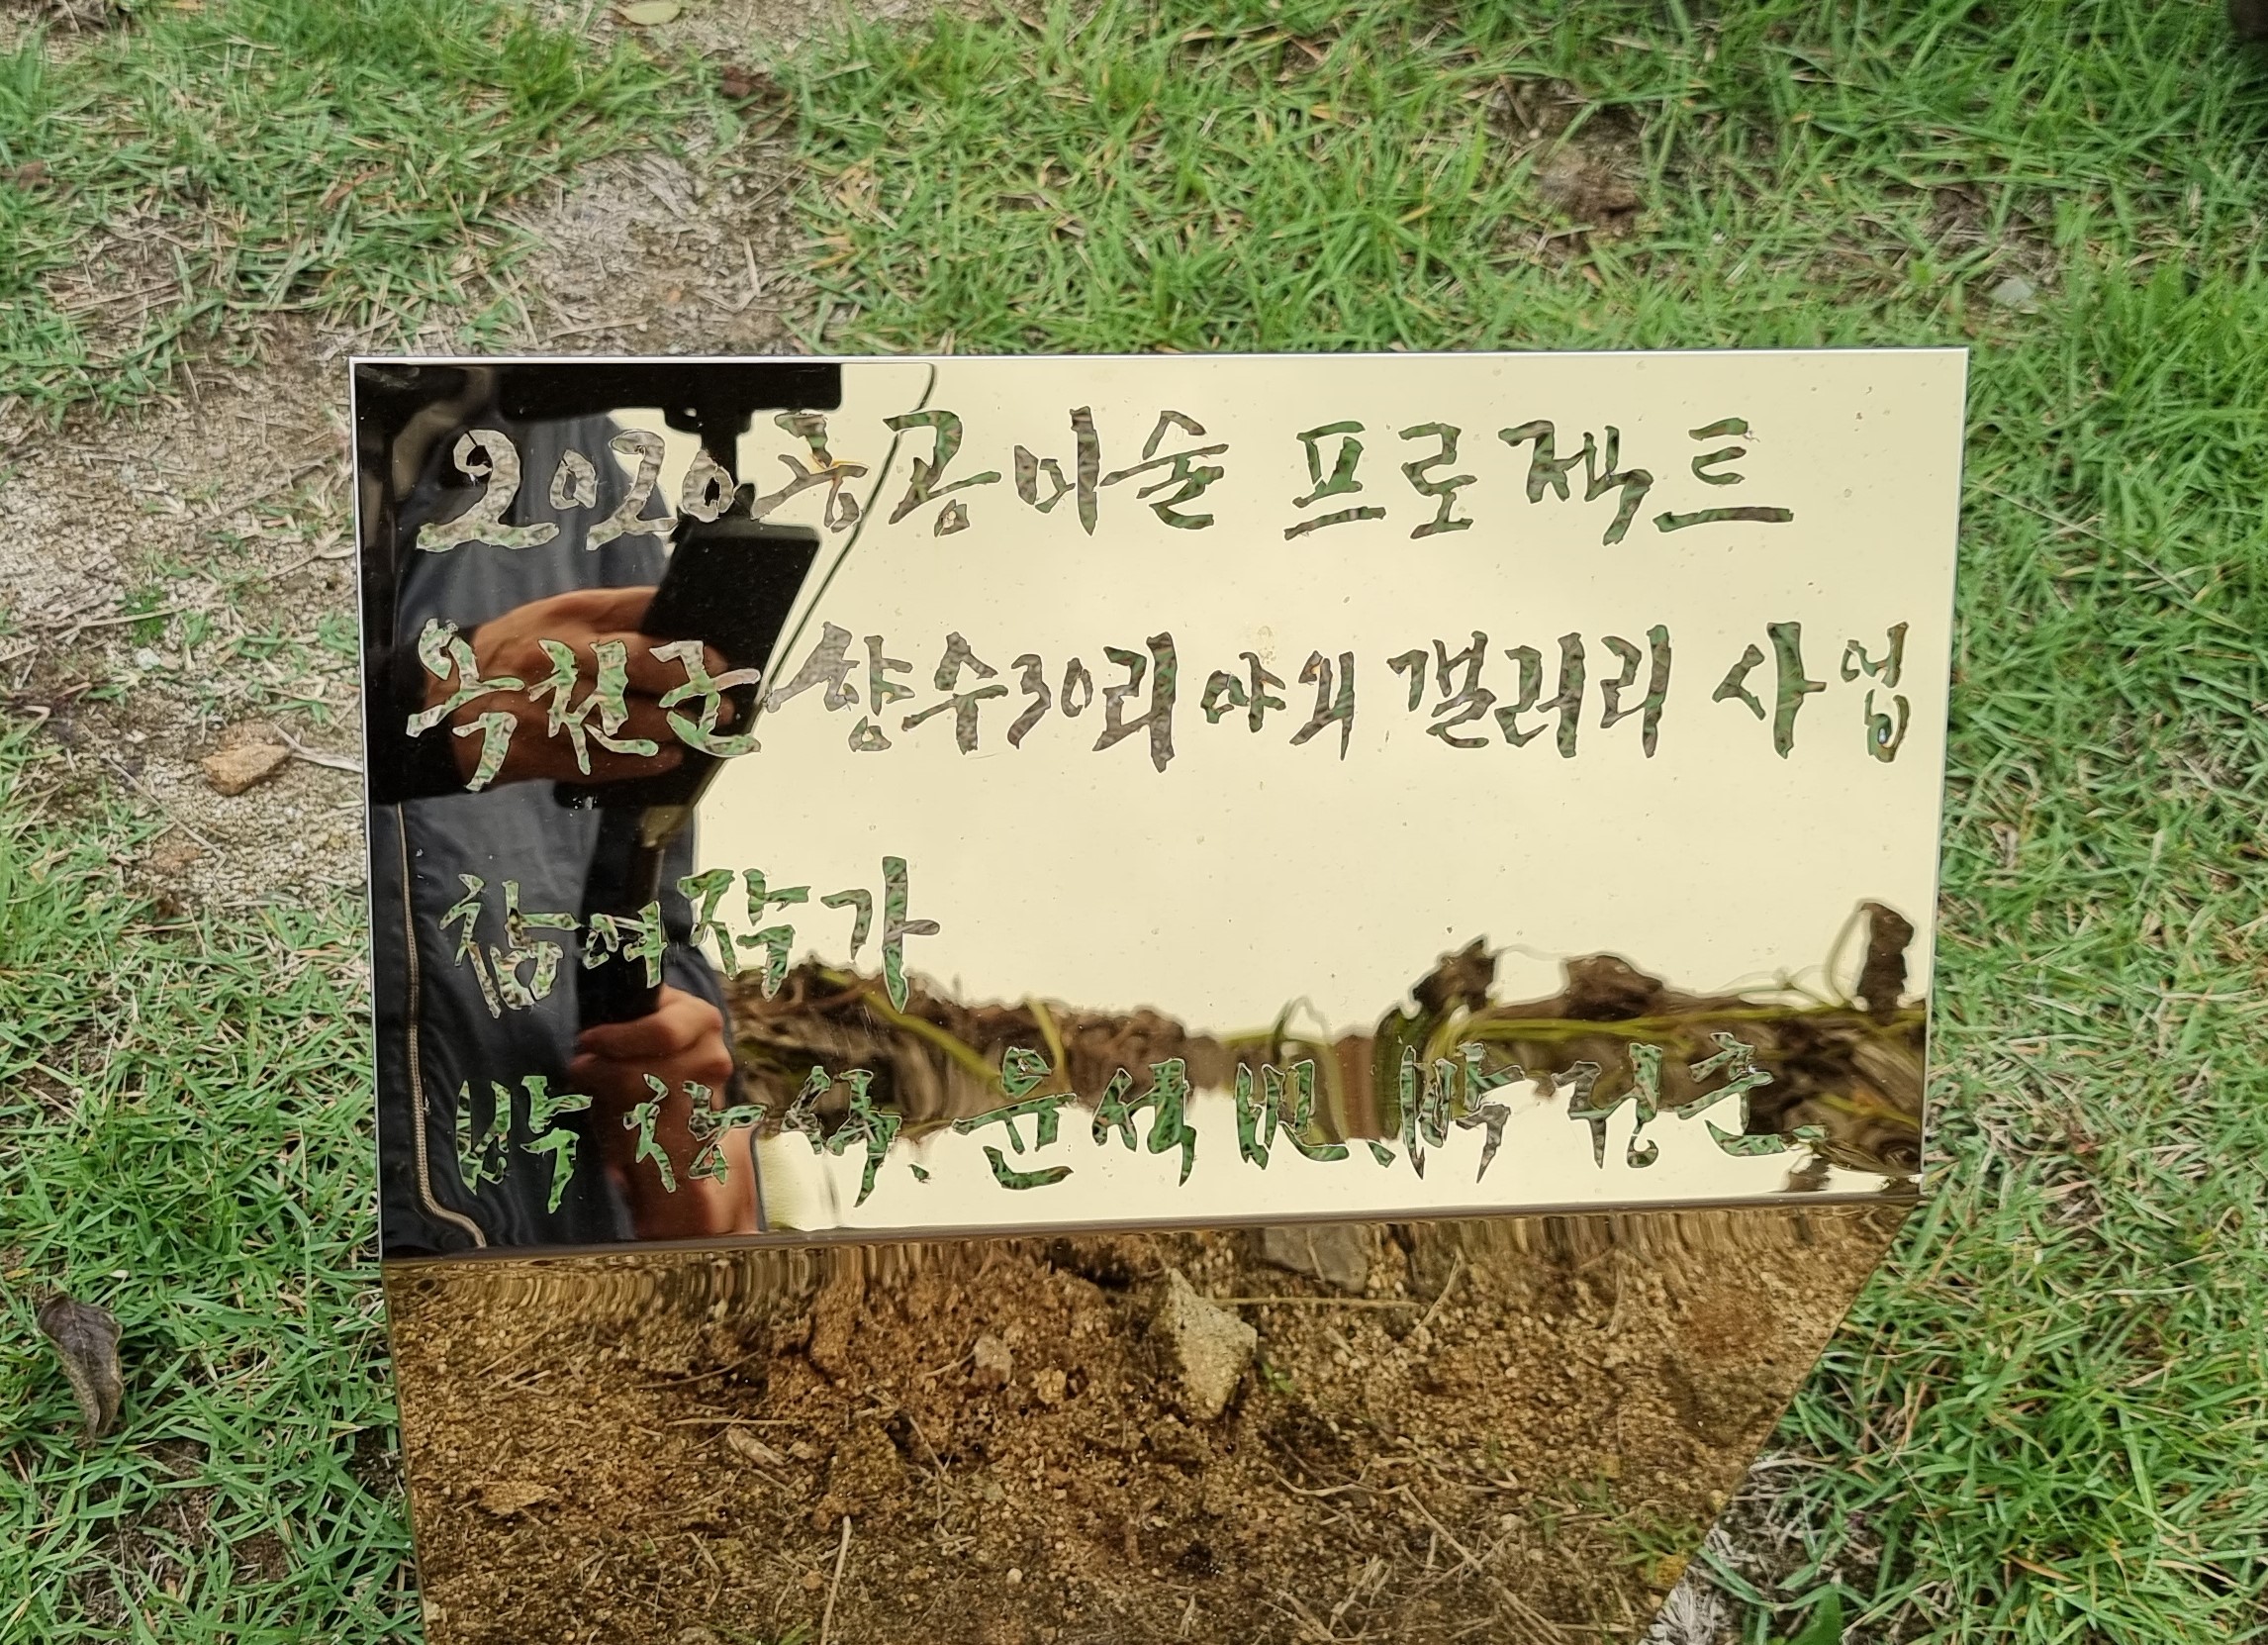 2020공공미술 프로젝트
옥천군 향수30리 야외 갤러리 사업
참여작가
윤석